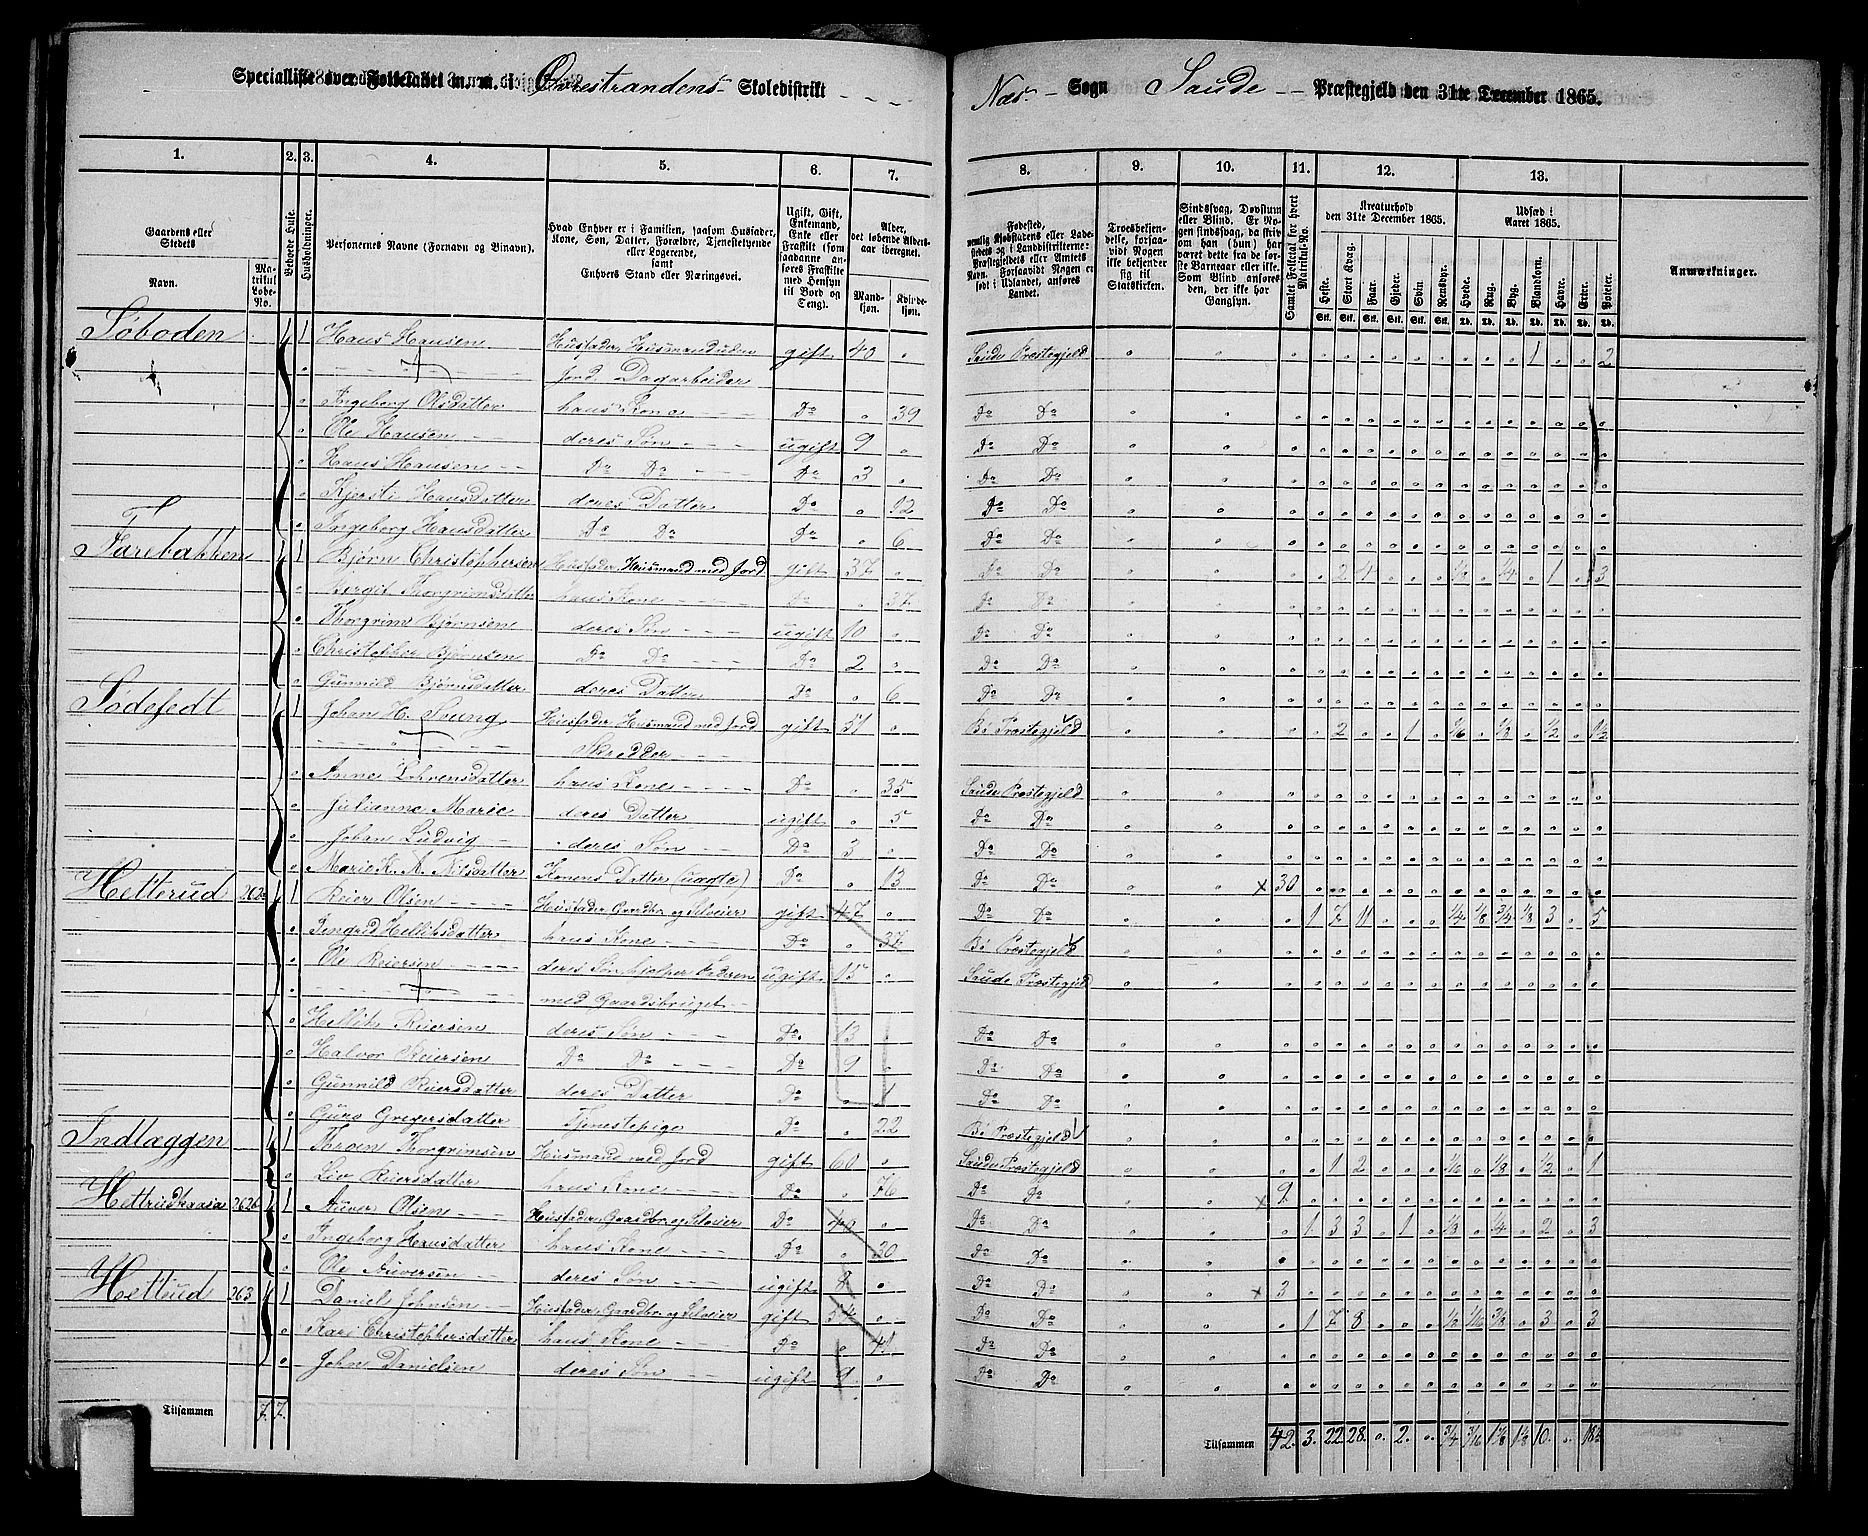 Specialliste over Folketallet m. m. i Øvrestrandens Skoledistrikt
Næs Sogn Saude Præstegjeld den 31te December 1865.
1. 2. 3. 4. 5. 6. 7.
8. 9. 10. 11. 12. 13.
Gaardens eller Stedets
Navn.
Matrikul Løbe-No.
Beboede Huse.
Husholdninger.
Personernes Navne (Fornavn og Binavn).
Hvad Enhver er i Familien, saasom Husfader, Kone, Søn, Datter, Forældre, Tjenestetyende eller Logerende, samt Enhvers Stand eller Næringsvei.
Ugift, Gift, Enkemand, Enke eller Fraskilt (som saadanne anføres Fraskilte med Hensyn til Bord og Seng).
Alder, det løbende Aldersaar iberegnet.
Mandkjøn.
Kvindekjøn.
Fødested, nemlig Kjøbstadens eller Ladestedets og i Landdistrikterne: Præstegjeldets eller Amtets Navn. Forsaavidt Nogen er født i Udlandet, anføres Landet.
Troesbekjendelse, forsaavidt Nogen ikke bekjender sig til Statskirken.
Sindssvag, Døvstum eller Blind. Er Nogen sindssvag, da skriv om han (hun) har været dette fra de første Barneaar eller ikke. Som Blind ansføres den, der ikke har Gangsyn.
Samlet Folketal for hvert Matrikul-No.
Kreaturhold den 31te December 1865.
Udsæd i Aaret 1865.
Anmærkninger.
Heste. Stort Kvæg. Faar. Gjeder. Svin. Rensdyr. Hvede. Rug. Byg. Blandkorn. Havre. Erter. Poteter.
Stk. Stk. Stk. Stk. Stk. Stk. Td. Td. Td. Td. Td. Td. Td.
Søboden 1 1 Hans Hansen Husfader, Husmand uden gift 40 Saude Præstegjeld 1 2
Jord Dagarbeider
Ingeborg Olsdatter hans Kone Do 39 Do Do
Ole Hansen deres Søn ugift 9 Do Do
Hans Hansen Do Do Do 3 Do Do
Kjersti Hansdatter deres Datter Do 12 Do Do
Ingeborg Hansdatter Do Do Do 6 Do Do
Farebakken 1 1 Bjørn Christophersen Husfader, Husmand med Jord gift 37 Do Do 2 4 1/8 1/4 1 3
Bergit Thorgrimsdatter hans Kone Do 37 Do Do
Thorgrim Bjørnsen deres Søn ugift 10 Do Do
Christopher Bjørnsen Do Do Do 2 Do Do
Gunnild Bjørnsdatter deres Datter Do 6 Do Do
Sødefedt 1 1 Johan H. Soung Husfader, Husmand med Jord gift 51 Bø Præstegjeld 2 1 1/16 1/8 1/2 1 1/2
Skredder
Anne Lohrensdatter hans Kone Do 35 Saude Præstegjeld
Julianne Marie deres Datter ugift 5 Do Do
Johan Ludvig deres Søn Do 3 Do Do
Marie K. A. Nilsdatter Konens Datter (uægte) Do 13 Do Do x 30
Hetterud 262a 1 1 Reier Olsen Husfader, Gaardbr. og Selveier gift 47 Do Do 1 7 11 1/4 1/8 3/4 1/8 3 5
Ingrid Helliksdatter hans Kone Do 37 Bø Præstegjeld
Ole Reiersen deres Søn, hjelper Faderen ugift 15 Saude Præstegjeld
med Gaardsbruget
Hellik Reiersen deres Søn Do. 13 Do Do
Halvor Reiersen Do Do Do 9 Do Do
Gunnild Reiersdatter deres Datter Do 1 Do Do
Guro Gregersdatter Tjenestepige Do 22 Bø Præstegjeld
Indlæggen 1 1 Troen Thorgrimsen Husmand med Jord gift 60 Saude Præstegjeld 1 2 1/16 1/8 1/2 1
Liv Reiersdatter hans Kone Do 76 Do Do x 9
Hettrudkaasa 262b 1 1 Auver Olsen Husfader, Gaardbr. og Selveier Do 40 Do Do 1 3 3 1 1/8 1/4 2 3
Ingeborg Hansdatter hans Kone Do 30 Do Do
Ole Auversen deres Søn ugift 8 Do Do x 3
Hettrud 263 1 1 Daniel Johnsen Husfader, Gaardbr. og Selveier gift 54 Do Do 1 7 8 1/8 1/16 3/8 3 3
Kari Christophersdatter hans Kone Do 41 Do Do
John Danielsen deres Søn ugift 9 Do Do
Tilsammen 7. 7.
Tilsammen 42. 3. 22 28. 2. 3/4 3/16 10.